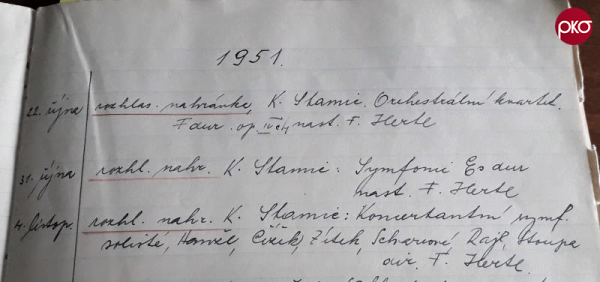 pko
1951.
22. října rozhlas. nahrávka, K. Stamic. Orchestrální kvartet
F dur. op. IV č4 nast. F. Hertl
31. října rozhl. nahr. K. Stamic: Symfonie Es dur
nast. F. Hertl
4. listop. rozhl. nahr. K. Stamic: Koncertantní symf.
solisté, Hanzl, Čížek, Zítek, Scharové, Rajl, Stoupa
dir. F. Hertl.